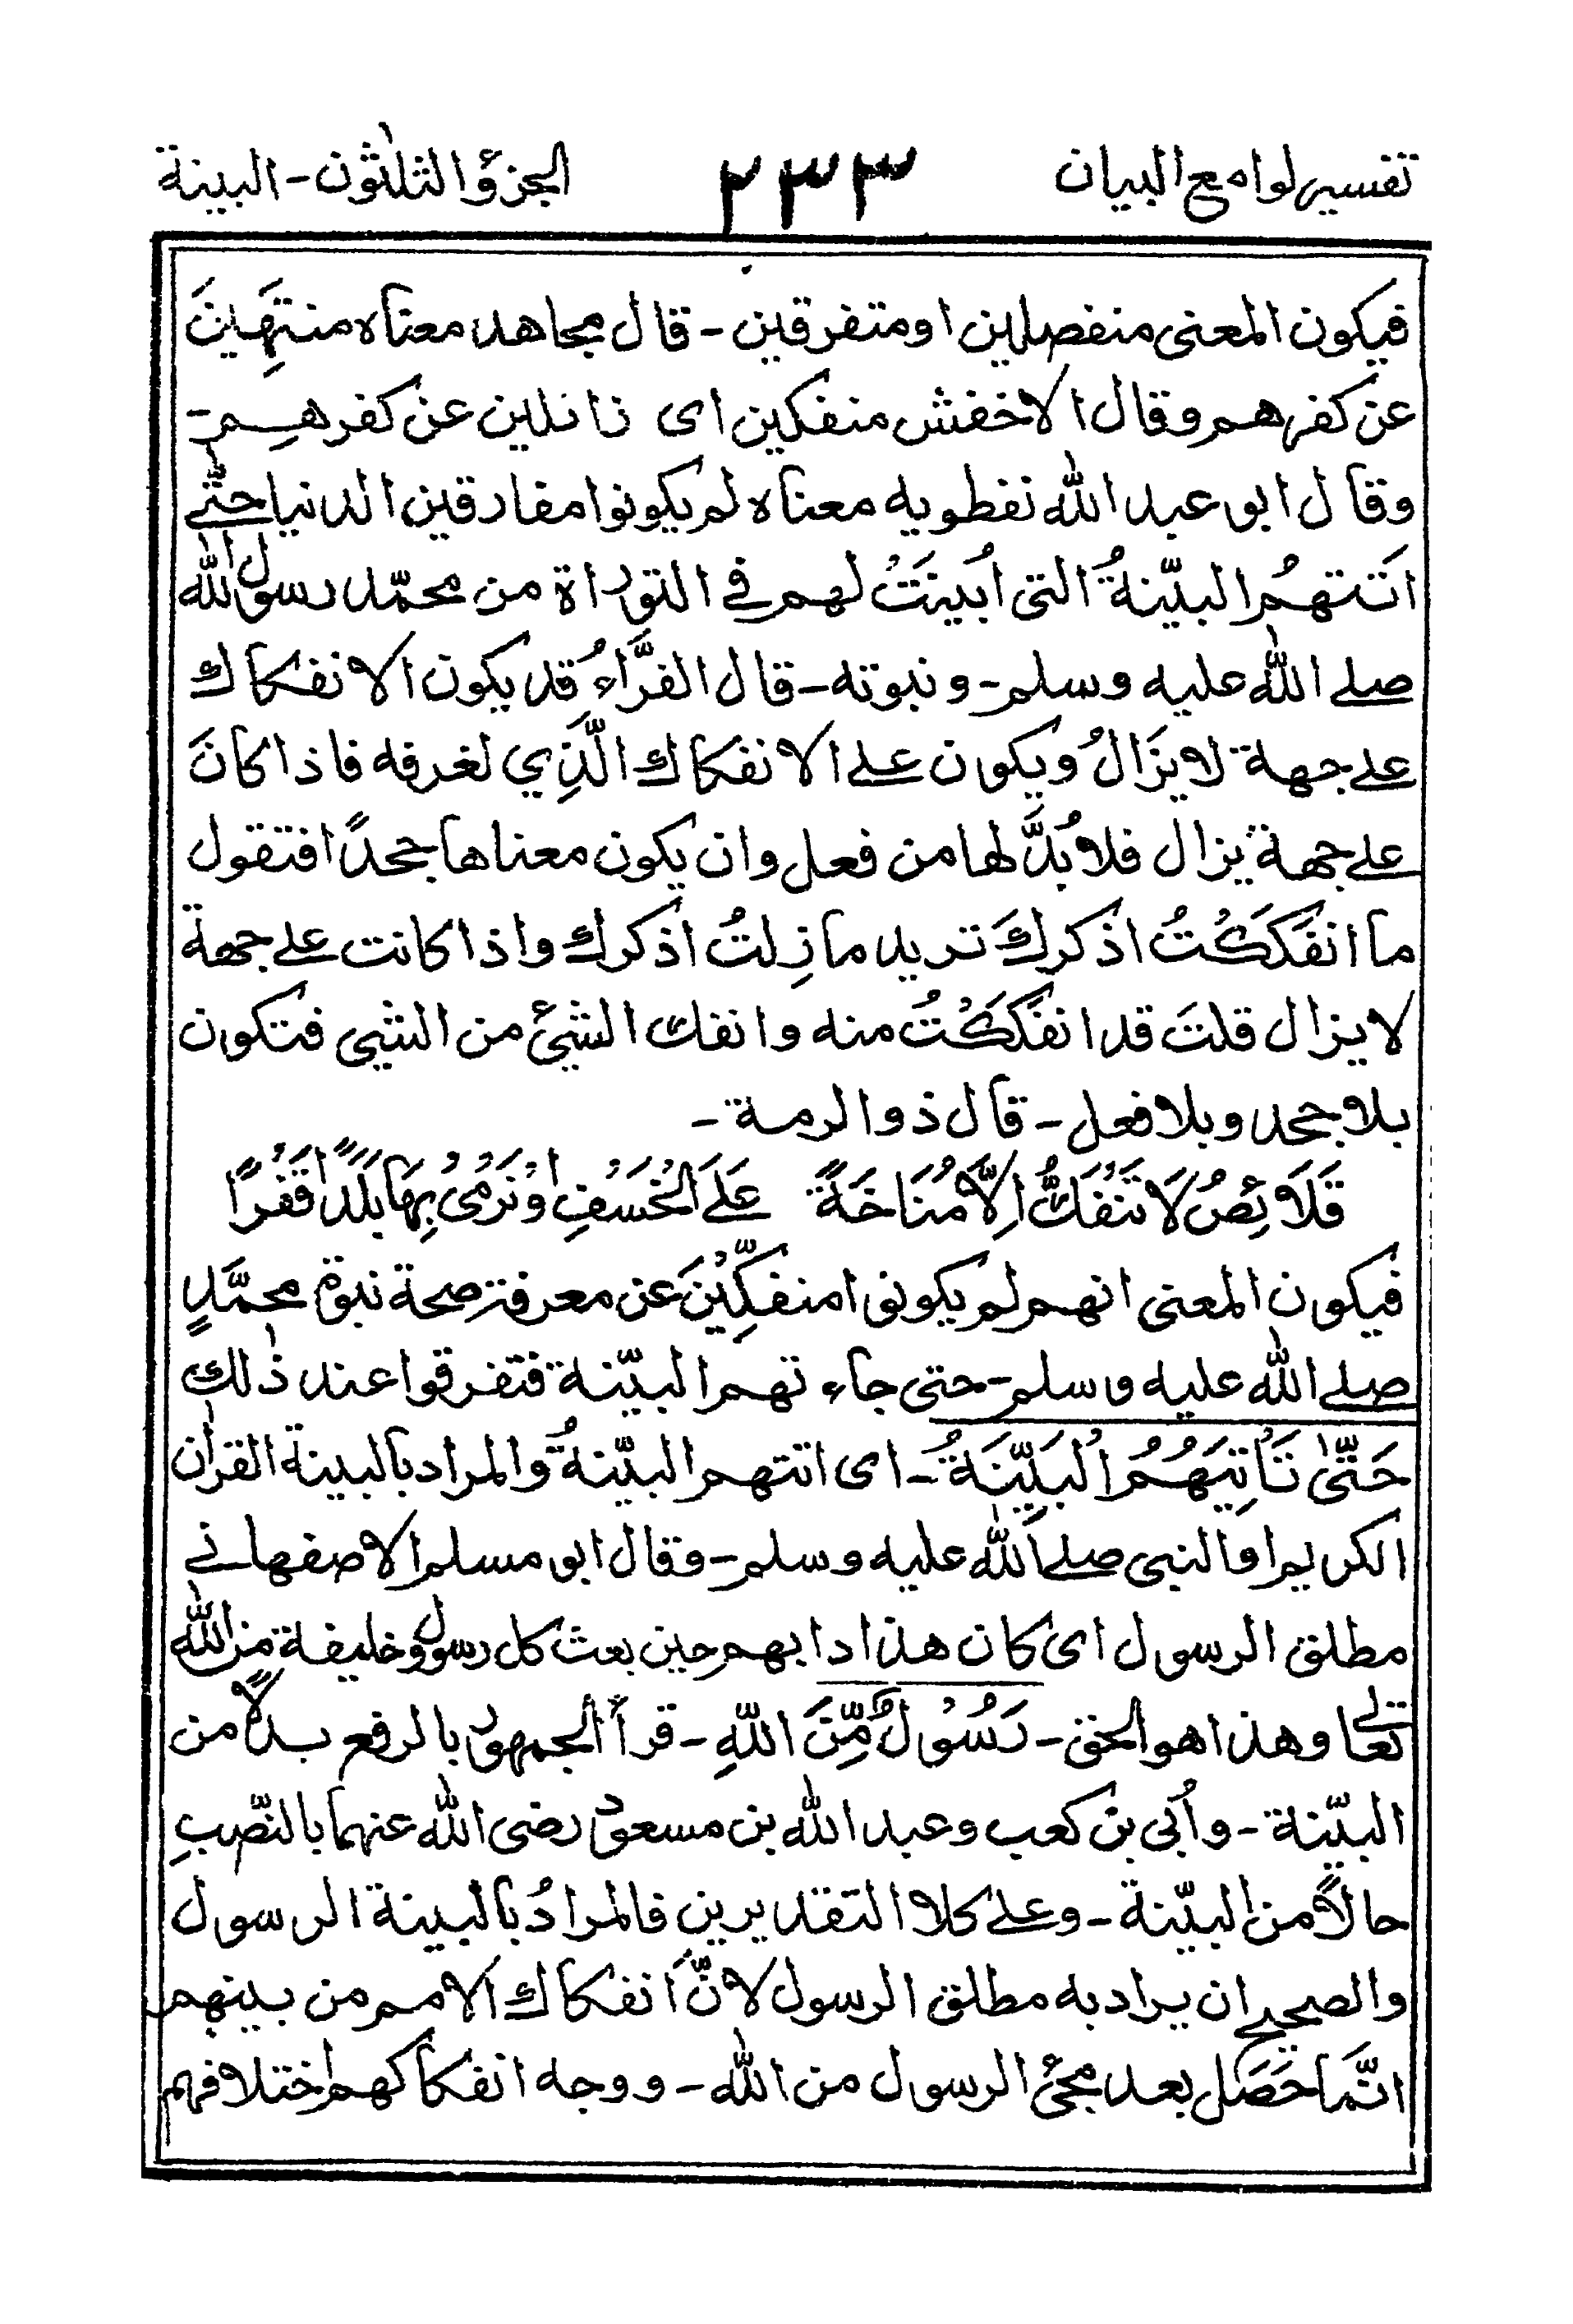 تفسير لوامع البيان ٢٣٣ الجزؤ الثلٰثون - البينة
فيكون المعنى منفصلين او متفرقين - قال مجاهد معناه منتهِينَ
عن كفرهم وقال الاخفش منفكين اى زائلين عن كفرهم -
وقال ابو عبد الله نفطويه معناه لم يكونوا مفارقين الدنيا حتّٰى
اَتتهمُ البيّنةُ التى اُبينَتْ لهم فى التوراة من محمّد رسول الله
صلى الله عليه وسلم - ونبوته - قال الفرَّاءُ قد يكون الانفكاك
على جهة لا يزَالُ ويكون على الانفكاك الَّذِي لغرفه فاذا كانَ
على جهة يزال فلا بُدَّ لها من فعل وان يكون معناها جحدًا فتقول
ما انفَكَكْتُ اذكركَ تريد ما زِلتُ اذكرك واذا كانت على جهة
لا يزال قلتَ قد انفَكَكْتُ منه وانفك الشئ من الشى فتكون
بلا جحد وبلا فعل - قال ذو الرمة -
قَلَائِصُ لَا تَنْفَكُّ اِلَّا مُنَاخَةً عَلَى الْخَسْفِ اَوْ نَرْمِىْ بِهَا بَلَدًا قَفْرًا
فيكون المعنى انهم لم يكونوا منفكِّيْنَ عن معرفة صحة نبوة محمَّدٍ
صلى الله عليه وسلم - حتى جاءتهم البيّنة فتفرقوا عند ذٰلك
حَتّٰى تَأْتِيَهُمُ الْبَيِّنَةُ - اى اتتهم البيّنةُ والمراد بالبينة القرآن
الكريم او النبى صلى الله عليه وسلم - وقال ابو مسلم الاصفهانى
مطلق الرسول اى كان هذا دابهم حين بعث كل رسول وخليفة من الله
تعالى وهذا هو الحق - رَسُوْلٌ مِّنَ اللّٰهِ - قرأ الجمهور بالرفع بدلًا من
البيّنة - واُبى بن كعب وعبد الله بن مسعود رضى الله عنهما بالنّصبِ
حالًا من البيّنة - وعلى كلا التقديرين فالمرادُ بالبينة الرسول
والصحيح ان يراد به مطلق الرسول لانّ انفكاك الامم من بينهم
انّما حَصَل بعد مجئ الرسول من الله - ووجه انفكاكهم اختلافهم